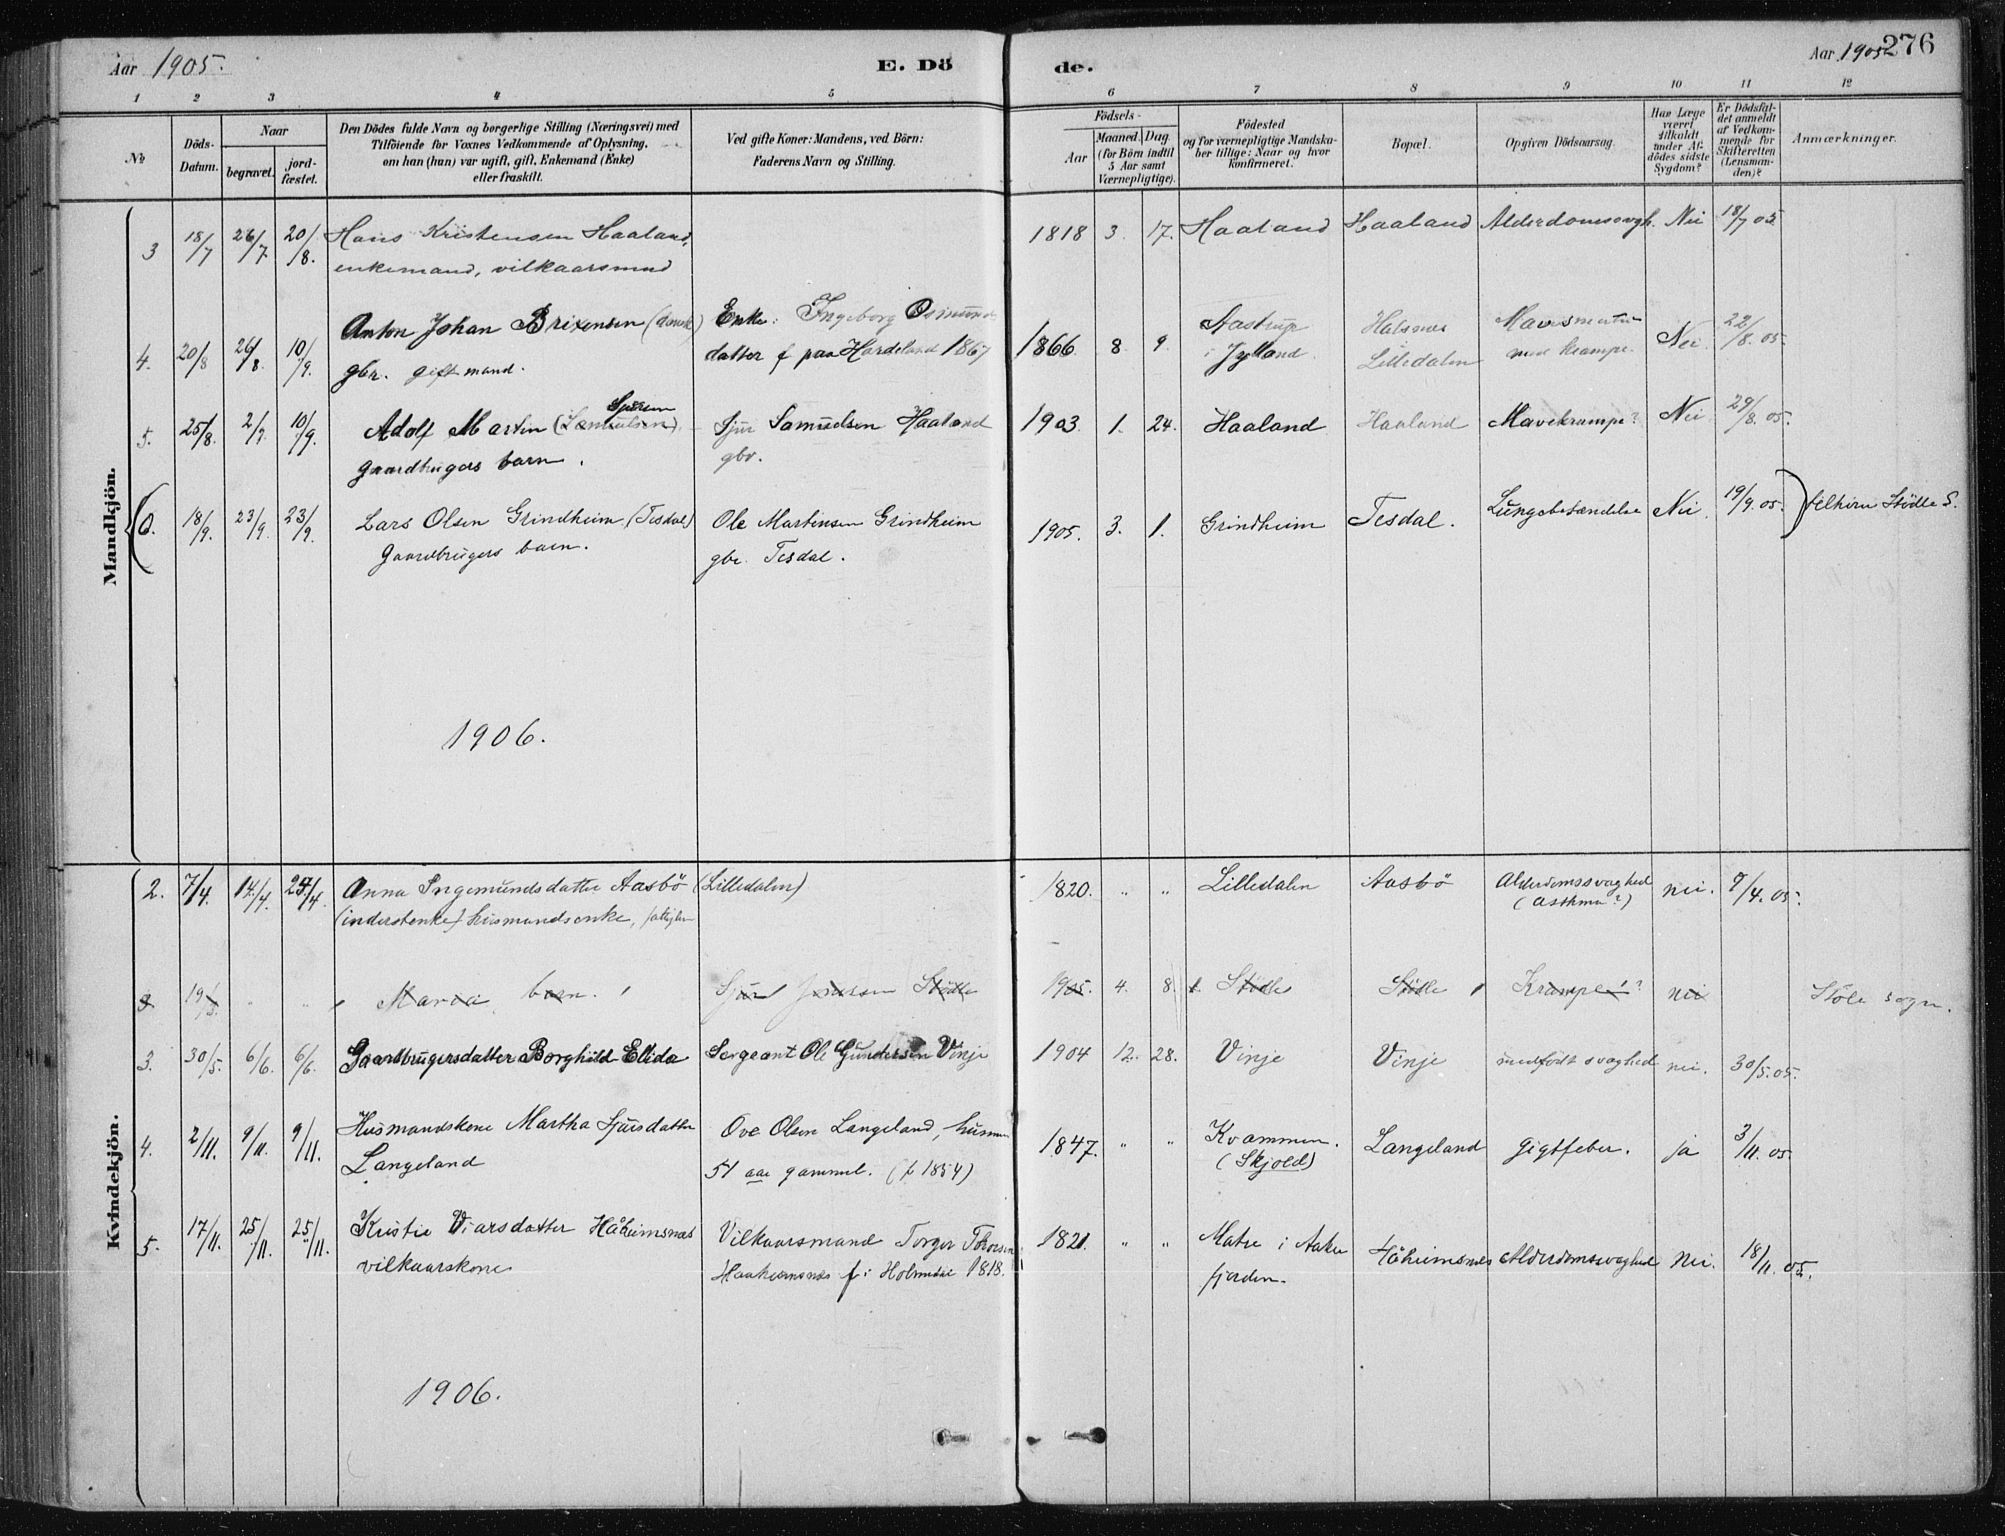 Aar 1905. E. Dö de. Aar 1905 276
1 2 3 4 5 6 7 8 9 10 11 12
No Döds-Datum. Naar begravet. jord-fæstet. Den Dödes fulde Navn og borgerlige Stilling (Næringsvei) med Tilföiende for Voxnes Vedkommende af Oplysning, om han (hun) var ugift, gift, Enkemand (Enke) eller fraskilt. Ved gifte Koner: Mandens, ved Börn: Faderens Navn og Stilling. Födsels- Aar Maaned. Dag. (for Börn indtil 5 Aar samt Værnepligtige). Födested og for værnepligtige Mandska-ber tillige: Naar og hvor konfirmeret. Bopæl. Opgiven Dödsaarsag. Har Læge været tilkaldt under Af-dödes sidste Sygdom? Er Dödsfal-det anmeldt af Vedkom-mende for Skifteretten (Lensman-den)? Anmærkninger.
Mandkjön.
3 18/7 26/7 20/8. Hans Kristensen Haaland, 1818 3. 17. Haaland Haaland Alderdomssvagh. Nei 18/7 05
enkemand, vilkaarsmand
4. 20/8 26/8. 10/9. Anton Johan Brixensen (dansk) Enke: Ingeborg Osmund 1866 8 9. Aastrup Halsnes Nei 22/8. 05.
gbr. gift mand. datter f paa Hardeland 1867 i Jylland. Lilledalen med krampe.
5. 25/8. 2/9. 10/9. Adolf Martin (Samuelsen) Sjursen Sjur Samuelsen Haaland 1903 1. 24. Haaland Haaland Mavekrampe? Nei 29/8. 05.
gaardbrugers barn. gbr.
(6. 18/9. 23/9. 23/9. Lars Olsen Grindheim (Tesdal) Ole Martinsen Grindheim 1905. 3. 1. Grindheim Tesdal. Lungebetændelse Nei 19/9. 05. Stödle S.
Gaardbrugers barn. gbr. Tesdal.
1906.
Kvindekjön.
2. 7/4. 14/4. 24/4 Anna Ingemundsdatter Aasbö (Lilledalen) 1820. " " Lilledalen Aasbö Alderdomssvaghed nei. 8/4. 05.
(inderstenke) husmandsenke, (Asthma?)
3 19/5. " " Maria barn. Sjur Stödle 1905. 4. 8. Stödle Stödle Krampe? nei Stöle sogn.
3. 30/5. 6/6. 6/6. Gaardbrugersdatter Borghild Elida Sergeant Ole Gundersen Vinje 1904 12. 28. Vinje Vinje medfödt svaghed nei. 30/5. 05.
4. 2/11. 9/11. 9/11. Husmandskone Martha Sjursdatter Ove Olsen Langeland, husm 1847. " " Kvammen. Langeland Gigtfeber. ja 3/11. 05
Langeland 51 aar gammel. (f 1854) (Skjold)
5. 17/11. 25/11. 25/11. Kristie Viarsdatter Håheimsnes Vilkaarsmand Torger Thoresen 1821. " " Matre i Aakre Håheimsnes Alderdomssvaghed Nei. 18/11. 05.
vilkaarskone Haaheimsnes f. i Holmedal 1818. fjorden.
1906.